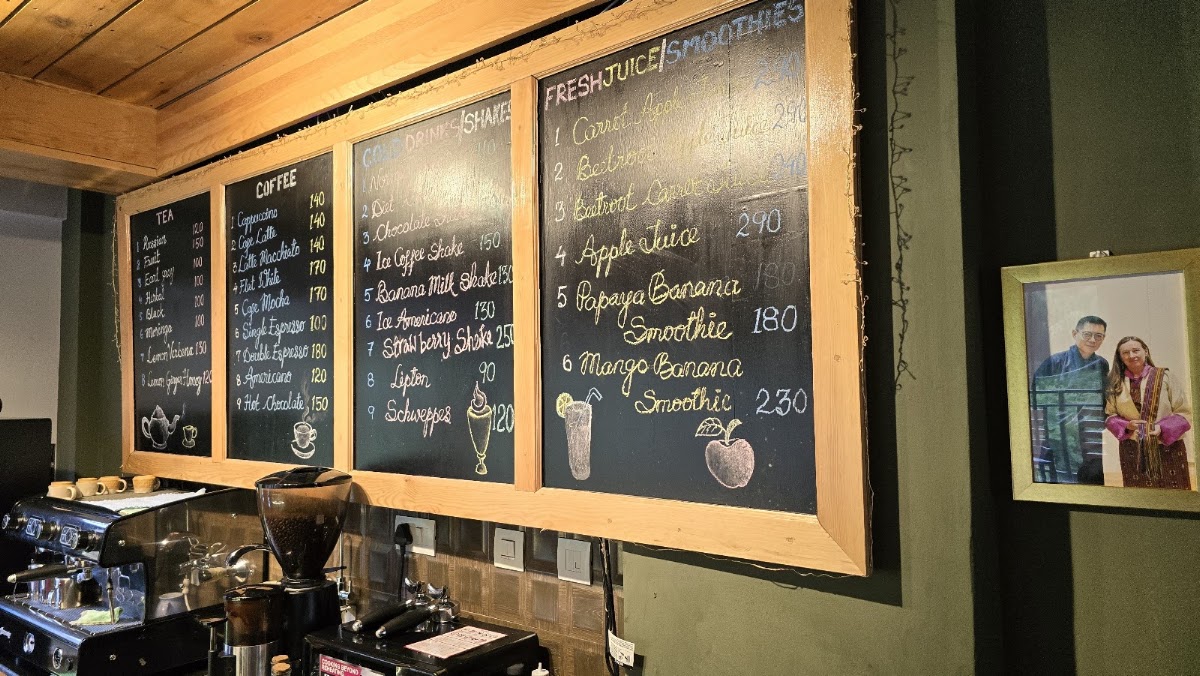 TEA
1 Russian 120
2 Fruit 150
3 Earl grey 100
4 Herbal 100
5 Black 100
6 Moringa 100
7 Lemon 150
8 Lemon Ginger Honey 120
COFFEE
1 Cappuccino 140
2 Cafe Latte 140
3 Latte Macchiato 140
4 Flat White 170
5 Cafe Mocha 170
6 Single Espresso 100
7 Double Espresso 180
8 Americano 120
9 Hot Chocolate 150
COLD DRINKS/SHAKES
1
2 Diet
3 Chocolate
4 Ice Coffee Shake 150
5 Banana Milk Shake 150
6 Ice Americano 130
7 Strawberry Shake 250
8 Lipton 90
9 Schweppes 120
FRESH JUICE/SMOOTHIES
1 Carrot Apple
2 Beetroot Apple Juice 290
3 Beetroot Carrot 290
4 Apple Juice 290
5 Papaya Banana 180
Smoothie 180
6 Mango Banana
Smoothie 230